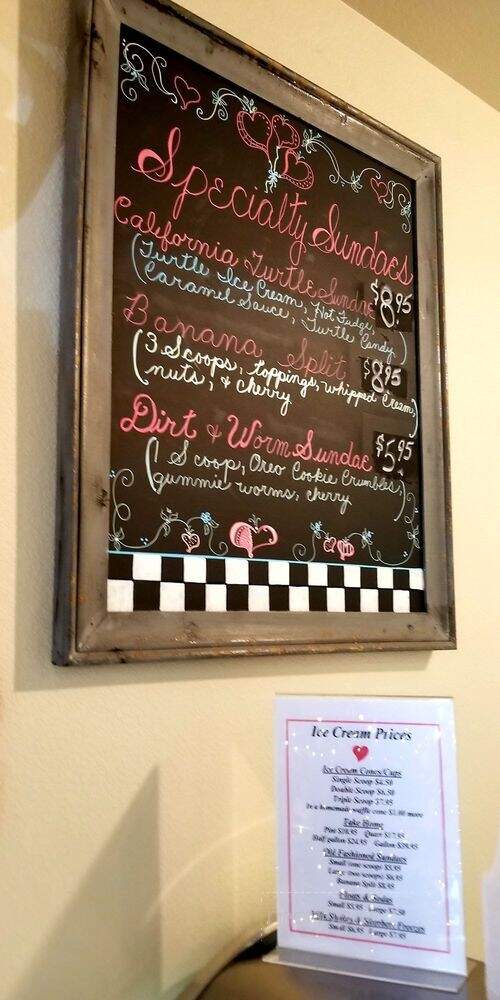 Specialty Sundaes
California Turtle Sundae $8.95
(Turtle Ice Cream, Hot Fudge,
Caramel Sauce, Turtle Candy)
Banana Split $8.95
(3 Scoops, toppings, whipped cream,
nuts, & cherry)
Dirt & Worm Sundae $5.95
(1 Scoop, Oreo Cookie Crumbles,
gummie worms, cherry)
Ice Cream Prices
Ice Cream Cones/Cups
Single Scoop $4.50
Double Scoop $6.50
Triple Scoop $7.95
In a homemade waffle cone $1.00 more
Take Home
Pint $10.95 Quart $17.95
Half gallon $24.95 Gallon $39.95
Old Fashioned Sundaes
Small (one scoop) $5.95
Large (two scoops) $6.95
Banana Split $8.95
Floats & Sodas
Small $5.95 Large $7.50
Shakes &
Small $6.95 Large $7.95